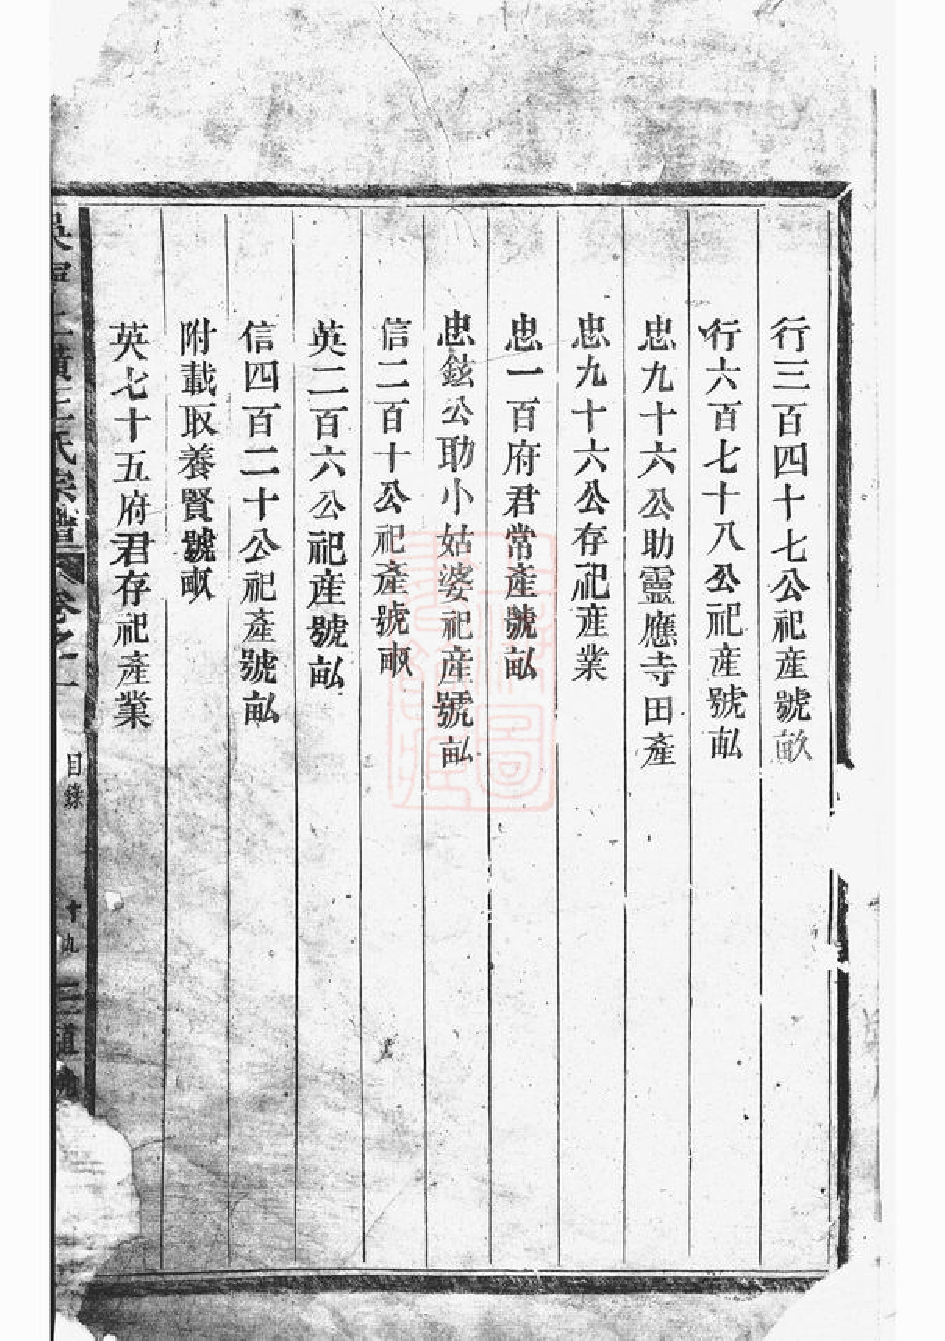 行三百四十七公祀産號畝
行六百七十八公祀産號畝
忠九十六公助靈應寺田產
忠九十六公存祀產業
忠一百府君常產號畝
忠鉉公助小姑婆祀産號畝
信二百十公祀產號畝
英二百六公祀産號畝
信四百二十公祀產號畝
附載取養賢號畝
英七十五府君存祀產業
王氏宗譜
卷之一
目錄
十九